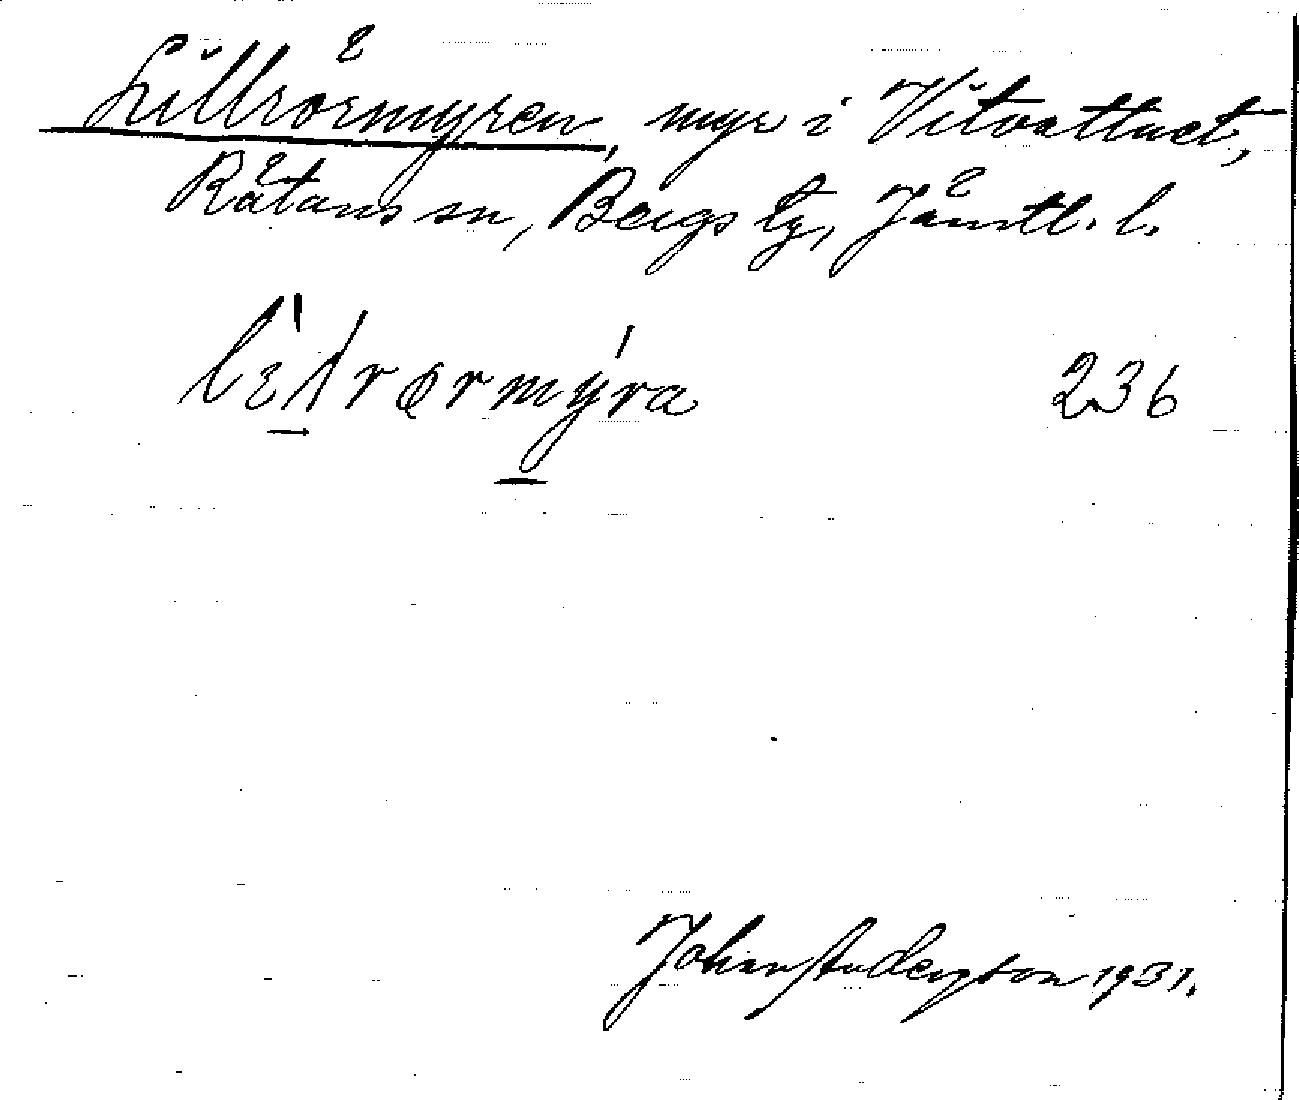 Lillrörmyren, myr i Vitvattnet,
Rätans sn, Bergs tg, Jämtl. l.
236
Johan Anderzson 1931.